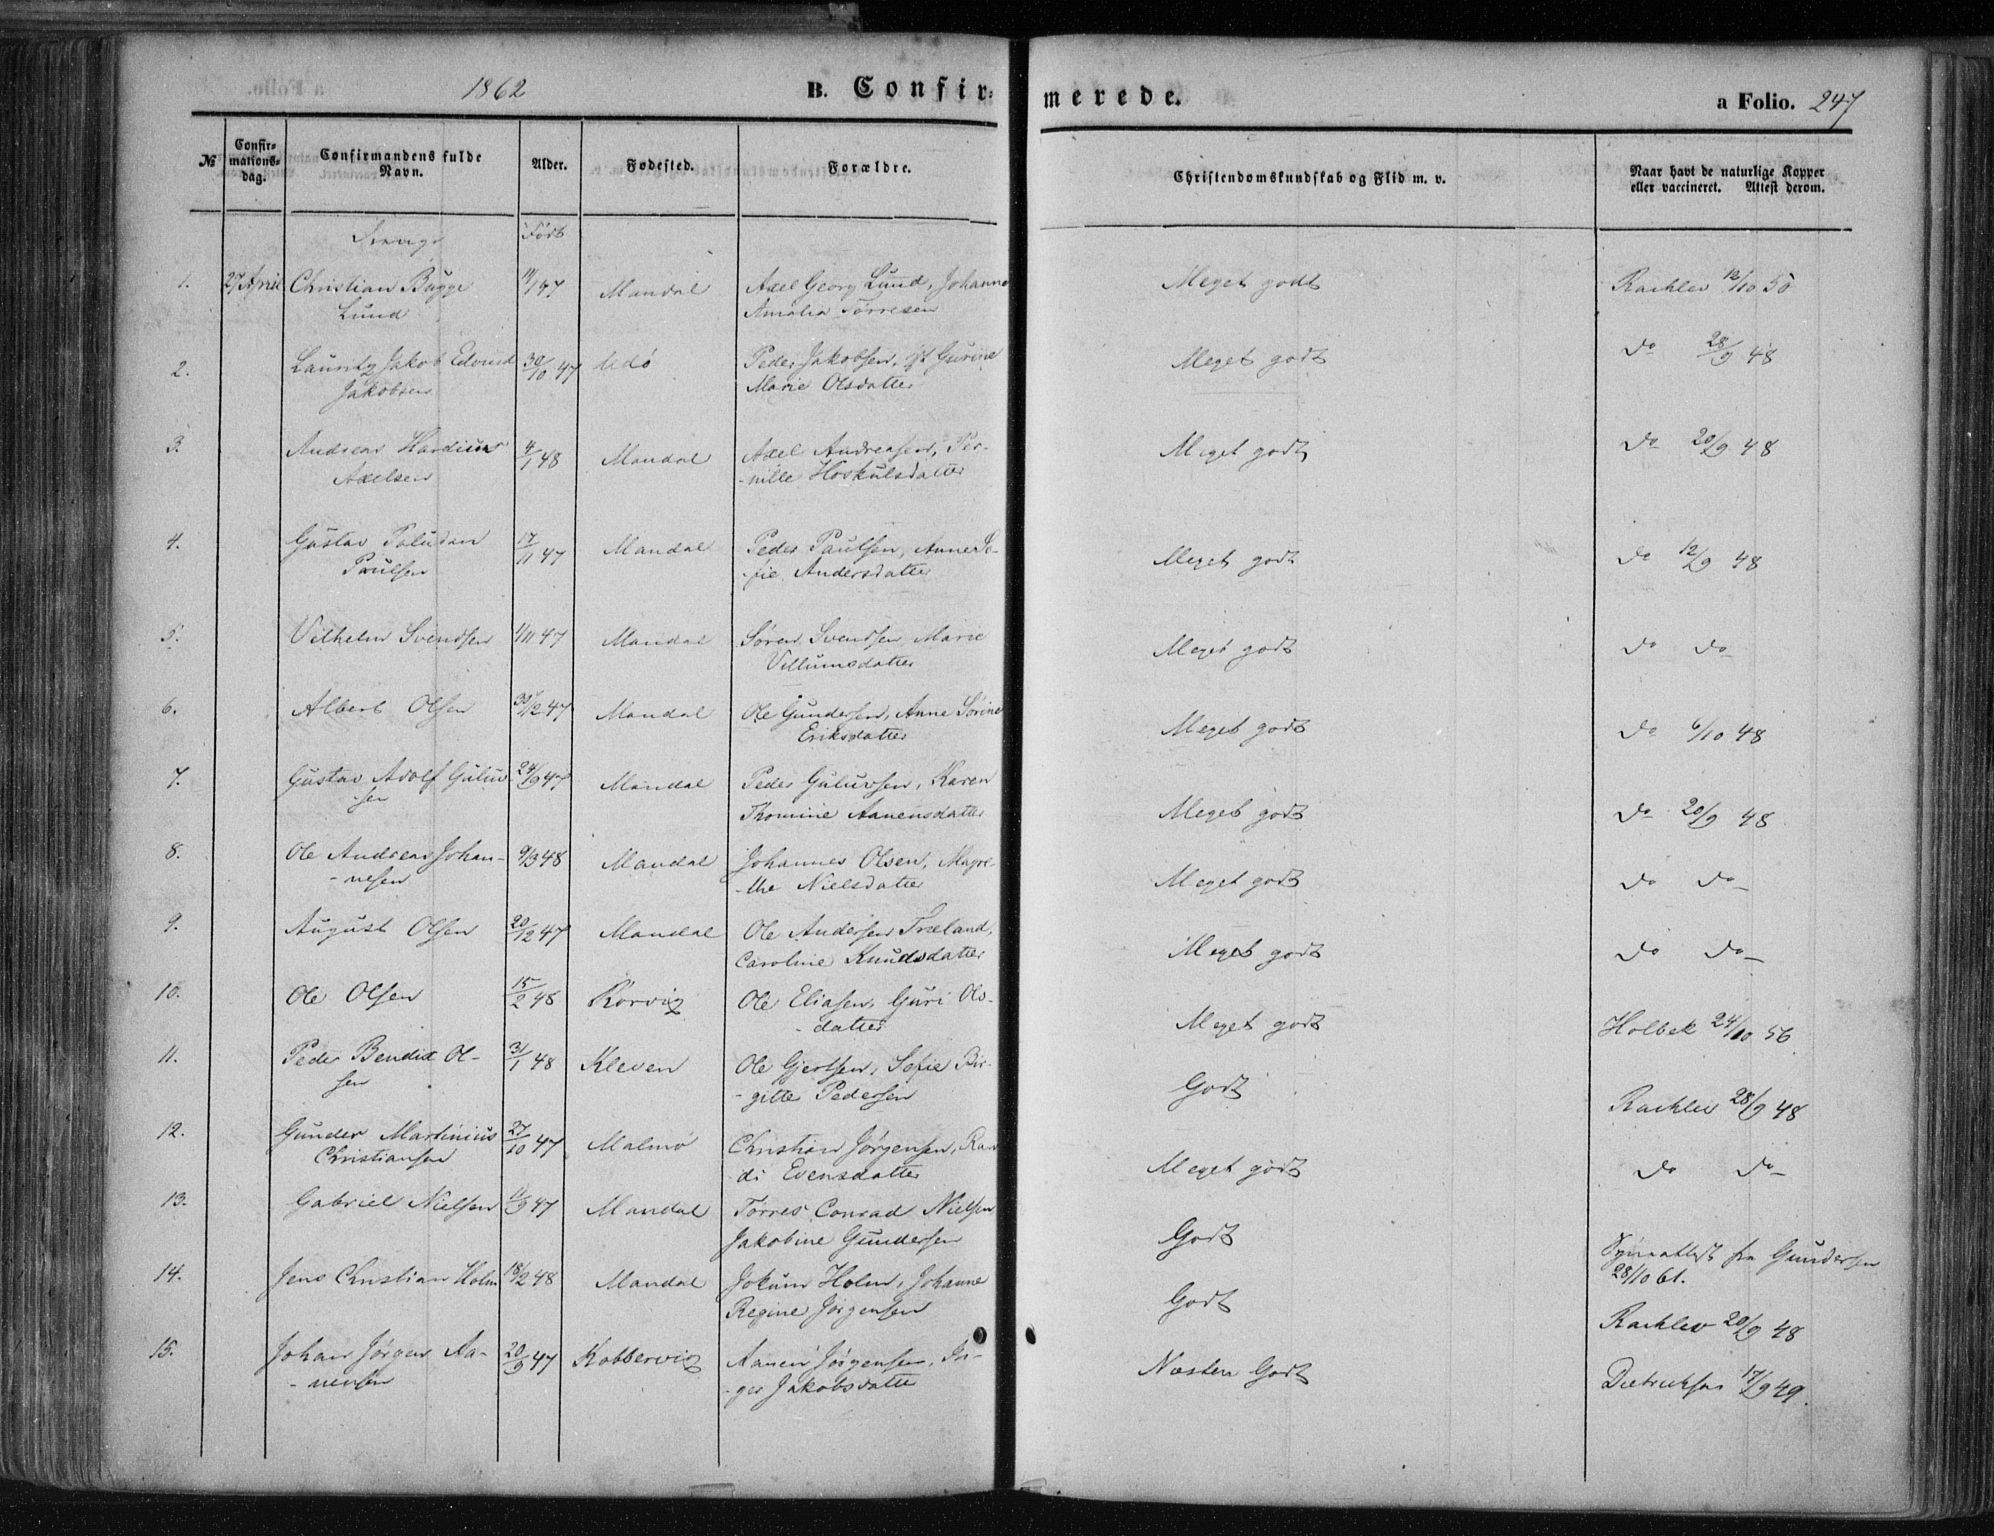 1862 B. Confir= merede. a Folio. 247
№ Confir=mations=dag. Confirmandens fulde Navn. Alder. Fødested. Forældre. Christendomskundskab og Flid m. v. Naar havt de naturlige Kopper eller vaccineret. Attest derom.
Drenge Født
1. 27 April Christian Bugge Mandal Axel Georg Lund, Johanne Meget godt 12/10 50
Lund Amalia Tørresen
2. Lauritz Jakob Edvind 30/10 47 Udø Peder Jakobsen, Gurine Meget godt do 28/9 48
Jakobsen Marie Olsdatter
3. Andreas Hardius 4/1 48 Mandal Axel Andreasen, Per- Meget godt do 20/9 48
Axelsen -nille Hoskulsdatter
4. Gustav Paludan 17/11 47 Mandal Peder Paulsen, Anne So- Meget godt do 12/9 48
Paulsen -fie Andersdatter
5. Vilhelm Svendsen 1/11 47 Mandal Søren Svendsen, Marie Meget godt do do
Villumsdatter
6. Albert Olsen 30/12 47 Mandal Ole Gundersen, Anne Sørine Meget godt do 6/10 48
Eriksdatter
7. Gustav Adolf Guluv 24/9 47 Mandal Peder Guluvsen, Karen Meget godt do 20/9 48
-sen Thomine Aanensdatter
8. Ole Andreas Johan- 9/3 48 Mandal Johannes Olsen, Magre- Meget godt do do
-nesen -the Nielsdatter
9. August Olsen 20/12 47 Mandal Ole Andersen Træland, Meget godt do do
Caroline Knudsdatter
10. Ole Olsen 15/2 48 Rørvig Ole Eliasen, Guri Ols- Meget godt Holbek 24/10 56
-datter
11. Peder Bendix Ol- 31/1 48 Kleven Ole Gjertsen, Sofie Bir- Godt 28/9 48
sen -gitte Pedersen
12. Gunder Martinius 27/10 47 Malmø Christian Jørgensen, Ran Meget godt do do
Christiansen -di Evensdatter
13. Gabriel Nielsen 47 Mandal Tørres Conrad Nielsen Godt fra Gundersen
Jakobine Gundersen 28/10 61.
14. Jens Christian Holm 18/2 48 Mandal Jokum Holm, Johanne Godt 20/9 48
Regine Jørgensen
15. Johan Jørgen Aa- 20/9 47 Kobbervig Aanen Jørgensen, In- Næsten Godt 17/9 49.
-nensen -ger Jakobsdatter